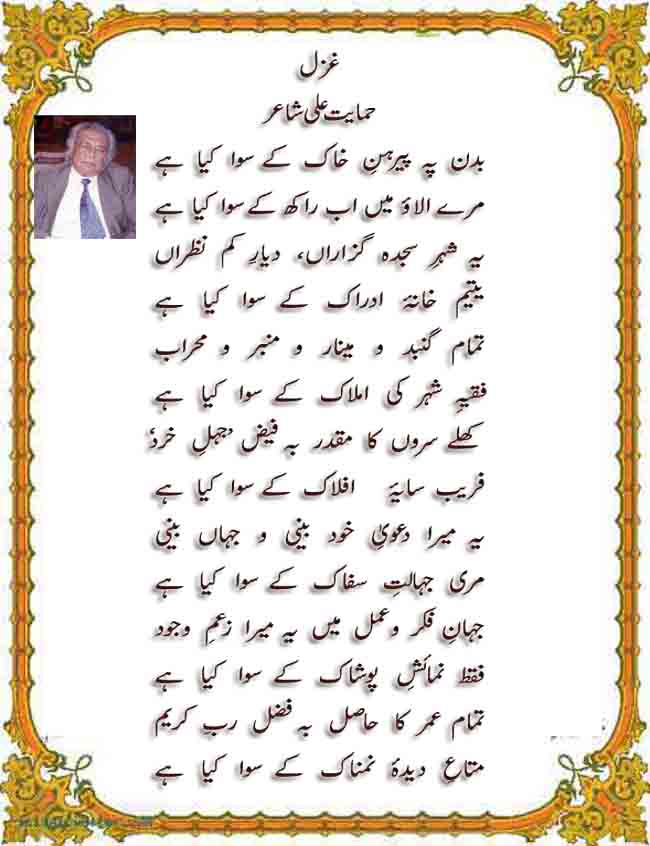 غزل
حمایت علی شاعر
بدن پہ پیرہنِ خاک کے سوا کیا ہے
مرے الاؤ میں اب راکھ کے سوا کیا ہے
یہ شہرِ سجدہ گزاراں، دیارِ کم نظراں
یتیم خانۂ ادراک کے سوا کیا ہے
تمام گنبد و مینار و منبر و محراب
فقیہِ شہر کی املاک کے سوا کیا ہے
کھلے سروں کا مقدر بہ فیض ’جہلِ خرد‘
فریب سایۂ افلاک کے سوا کیا ہے
یہ میرا دعویٰ خود بینی و جہاں بینی
مری جہالتِ سفاک کے سوا کیا ہے
جہانِ فکر و عمل میں یہ میرا زعمِ وجود
فقط نمائشِ پوشاک کے سوا کیا ہے
تمام عمر کا حاصل بہ فضل رب کریم
متاعِ دیدۂ نمناک کے سوا کیا ہے